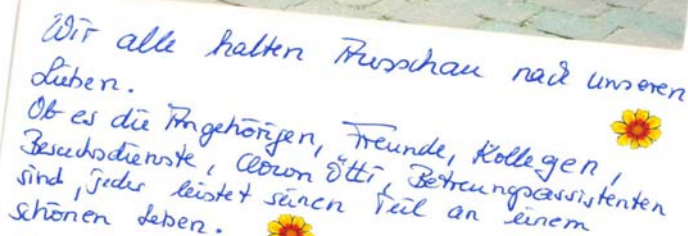 Wir alle halten Ausschau nach unseren
Lieben.
Ob es die Angehörigen, Freunde, Kollegen,
Besuchsdienste, Clown Ötti, Betreuungsassistenten
sind, jeder leistet seinen Teil an einem
schönen Leben.